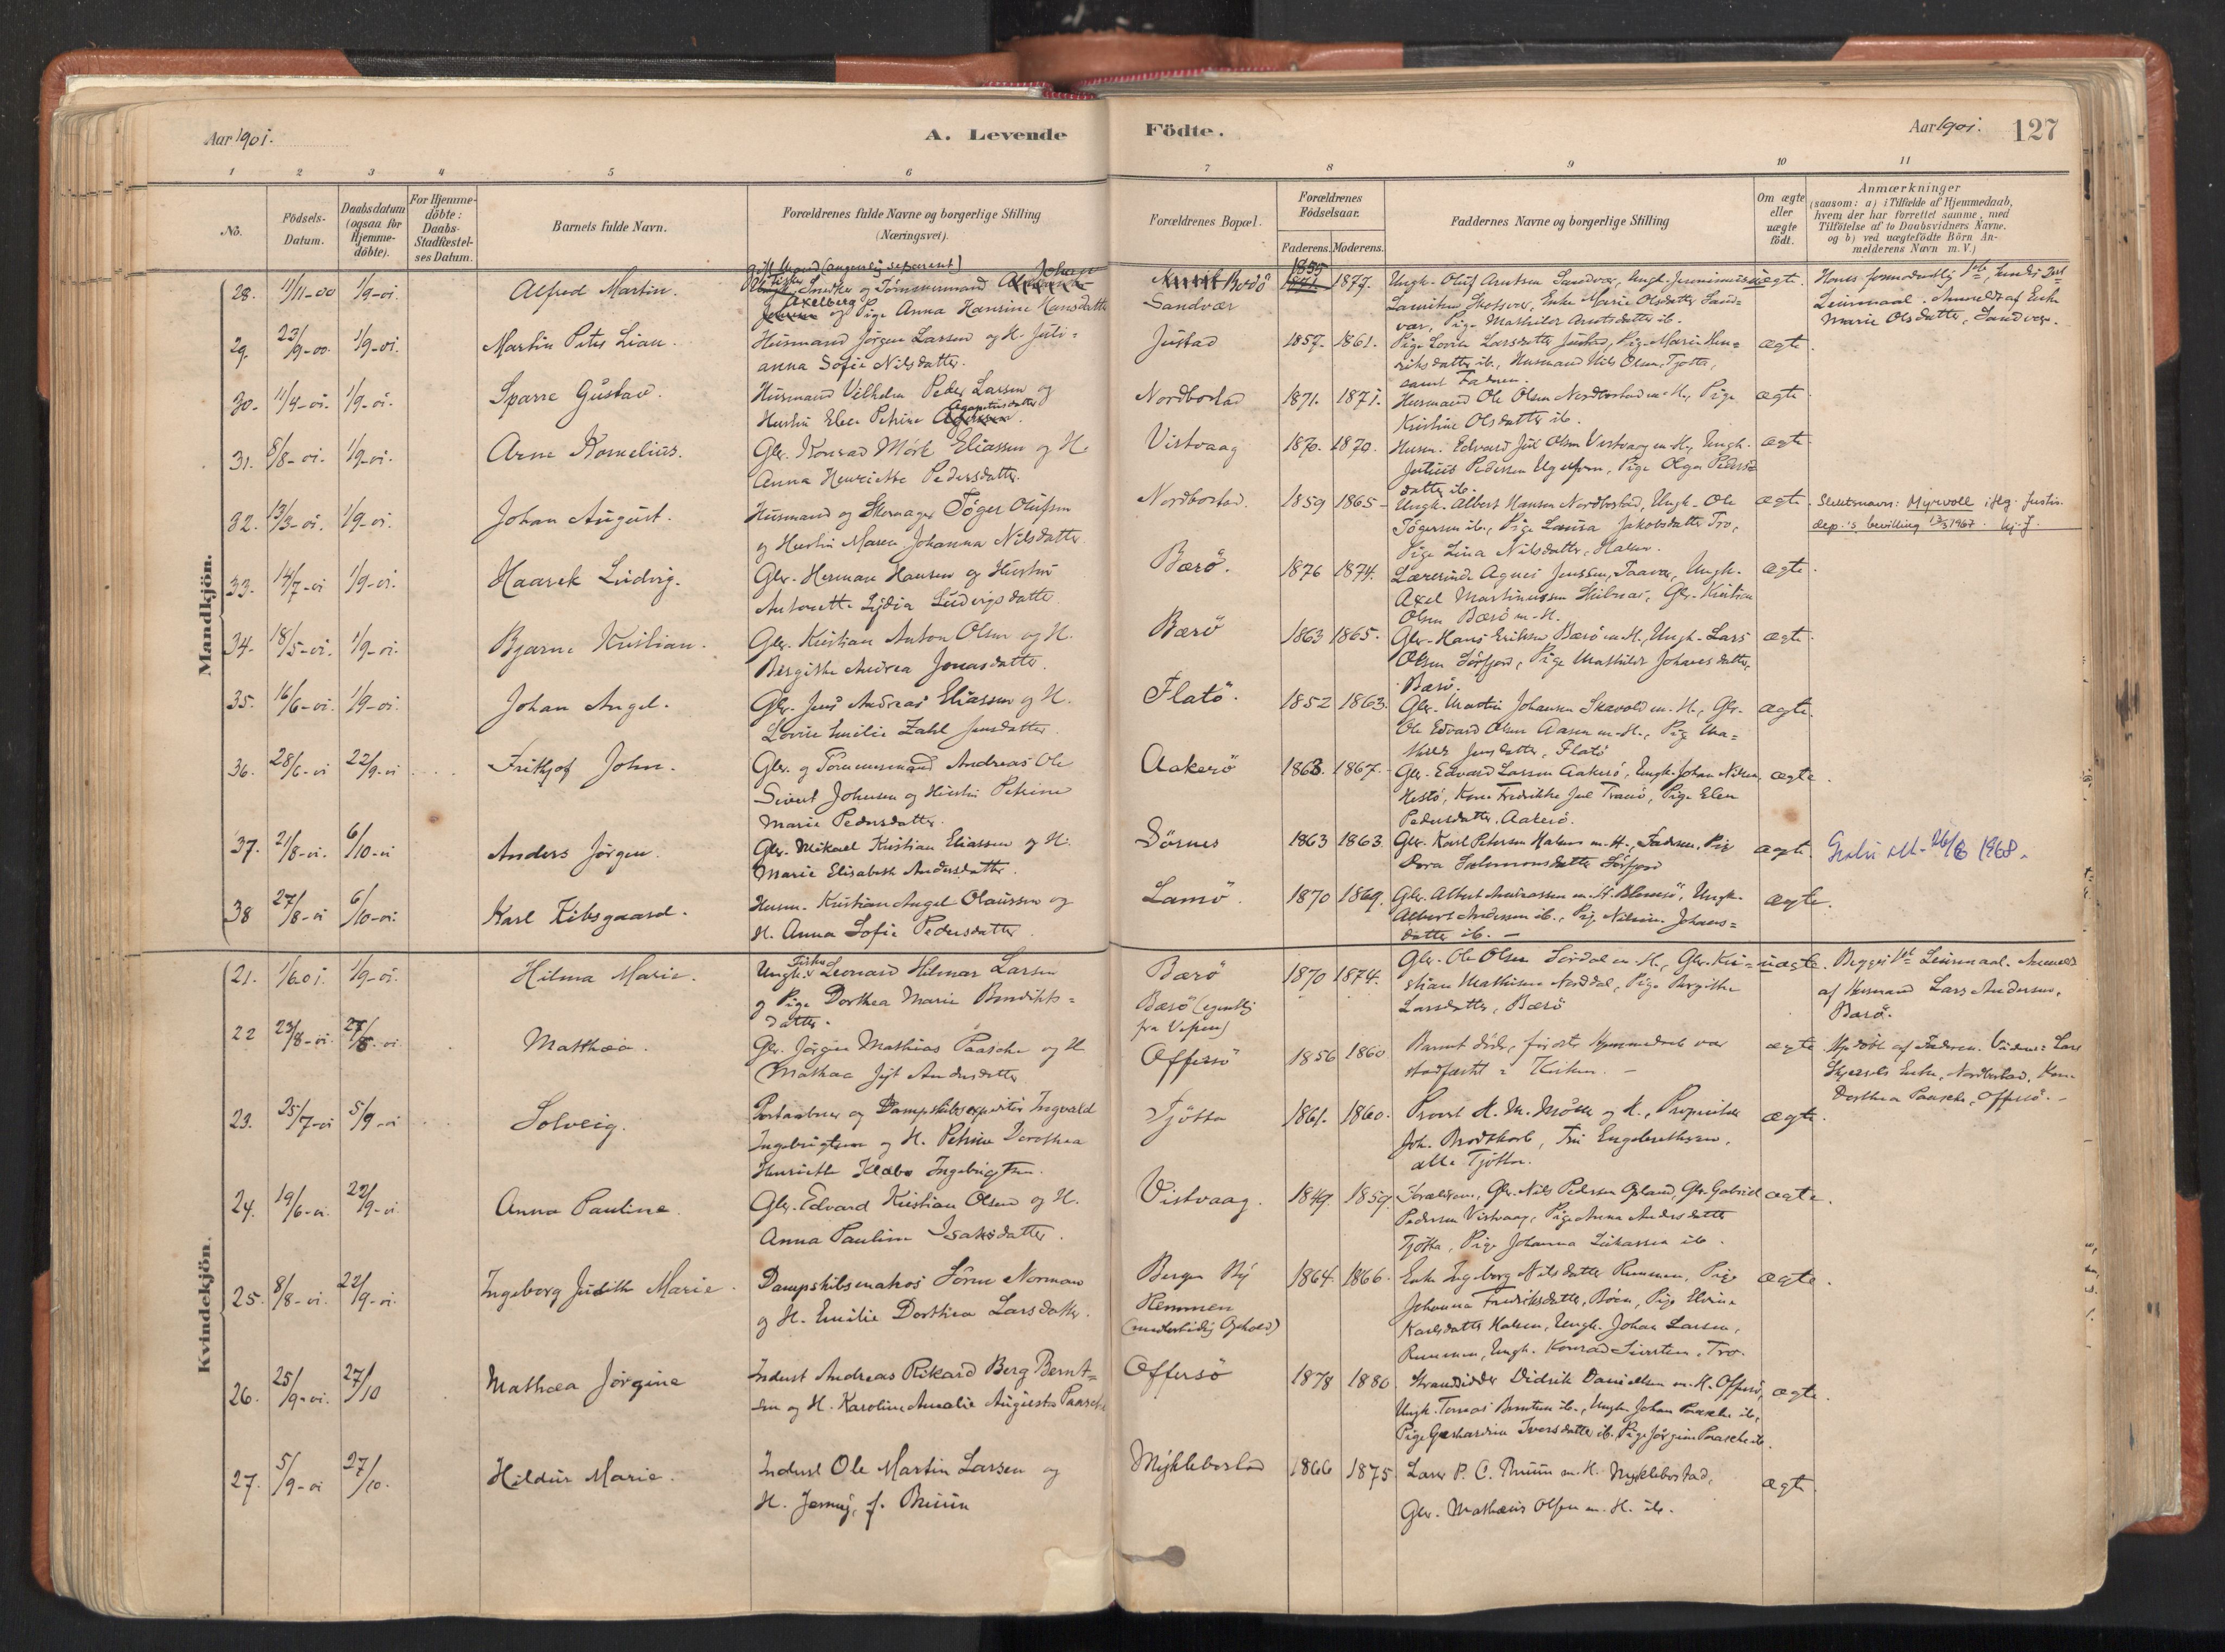 Aar 1901.
A. Levende
Födte.
Aar 1901.
127
1 2 3 4 5 6 7 8 9 10 11
No.
Födsels-
Datum.
Daabsdatum
(ogsaa for
Hjemme-
döbte).
For Hjemme-
döbte:
Daabs-
Stadfæstel-
ses Datum.
Barnets fulde Navn.
Forældrenes fulde Navne og borgerlige Stilling
(Næringsvei).
Forældrenes Bopæl.
Forældrenes
Födselsaar.
Faderens. Moderens.
Faddernes Navne og borgerlige Stilling
Om ægte
eller
uægte
födt.
Anmærkninger
(saasom: a) i Tilfælde af Hjemmedaab,
hvem der har forrettet samme, med
Tilföielse af to Daabsvidners Navne.
og b) ved uægtefödte Börn An-
melderens Navn m. V.)
Mandkjön.
28. 11/11-00 1/9-01. Alfred Martin.
gift Mand (angivelig separeret)
Snedker og Tömmermand Johan
Axelberg og Pige Anna Hansine Hansdatter
Bodö
Sandvær
1855 1877.
Ungk. Oluf Arntsen Sandvær, Ungk.
Enke Marie Olsdatter Sand-
vær, Pige Mathilde Arntsdatter ib.
uægte.
Leiermaal. Anmeldt af Enke
Marie Olsdatter, Sandvær.
29. 23/9-00. 1/9-01. Martin Peter Lian.
Husmand Jörgen Larsen og H. Juli-
anna Sofie Nilsdatter.
Justad 1857. 1861.
Pige Lovise Larsdatter Justad, Pige Marie Hen-
riksdatter ib., Husmand Nils Olsen, Tjötta,
samt Faderen.
ægte
30. 11/4-01. 1/9-01. Sparre Gustav.
Husmand Vilhelm Peder Larsen og
Hustru Elen Petrine Agapetusdatter
Nordbostad 1871. 1871.
Husmand Ole Olsen Nordbostad m. H., Pige
Kristine Olsdatter ib.
ægte
31. 8/8-01. 1/9-01. Arne Kornelius.
Gbr. Konrad Mörk Eliassen og H.
Anna Henriette Pedersdatter.
Vistvaag 1870. 1870.
Husm. Edvard Jul Olsen Vistvaag m. H., Ungk.
Julius Pedersen, Pige Olga Peders-
datter ib.
ægte
32. 13/3-01. 1/9-01. Johan August.
Husmand og Skomager Töger Olufsen
og Hustru Maren Johanna Nilsdatter
Nordbostad. 1859 1865
Ungk. Albert Hansen Nordbostad, Ungk. Ole
Tögersen ib., Pige Laura Jakobsdatter Tro,
Pige Lina Nilsdatter, Halsen.
ægte.
Slektsnavn: Myrvoll iflg. Justis.
dep.'s bevilling 13/3 1967.
33. 14/7-01 1/9-01. Haarek Ludvig.
Gbr. Herman Hansen og Hustru
Antonette Lydia Ludvigsdatter
Bærö. 1876 1874.
Lærerinde Agnes Jenssen, Ungk.
Axel Martinussen, Gbr. Kristian
Olsen Bærö m. H.
ægte.
34. 18/5-01. 1/9-01. Bjarne Kristian.
Gbr. Kristian Anton Olsen og H.
Bergithe Andrea Jonasdatter.
Bærö 1863 1865.
Gbr. Hans Eriksen Bærö m. H., Ungk. Lars
Olsen Sörfjord, Pige Mathilde Johansdatter,
Bærö.
ægte
35. 16/6-01. 1/9-01. Johan Angel.
Gbr. Jens Andreas Eliassen og H.
Lovise Emilie Zahl Jensdatter
Flatö. 1852 1863.
Gbr. Martin Johansen Skavold m. H., Gbr.
Ole Edvard Olsen Aasen m. H., Pige Ma-
thilde Jensdatter, Flatö
ægte.
36. 28/6-01 22/9-01 Frithjof John.
Gbr. og Tömmermand Andreas Ole
Sivert Johnsen og Hustru Petrine
Marie Pedersdatter.
Aakerö 1863. 1867.
Gbr. Edvard Larsen Aakerö, Ungk. Johan Nilsen
Hestö, Kone Fredrikke Jul Tranö, Pige Elen
Pedersdatter, Aakerö.
ægte.
37. 21/8-01. 6/10-01 Anders Jörgen.
Gbr. Mikael Kristian Eliassen og H.
Marie Elisabeth Andersdatter.
Sörnes 1863 1863.
Gbr. Karl Petersen Halsen m. H., Faderen, Pige
Dora Salomonsdatter Sörfjord
ægte.
1968.
38 27/8-01 6/10-01. Karl Kibsgaard.
Husm. Kristian Angel Olaussen og
H. Anna Sofie Pedersdatter
Lamö. 1870 1869.
Gbr. Albert Andreassen m. H. Blomsö, Ungk.
Albert Andersen ib., Pige Nilsine Johans-
datter ib.
ægte.
Kvindekjön.
21. 1/6 01. 1/9-01. Hilma Marie.
Ungk. Fisker Leonard Hilmar Larsen
og Pige Dorthea Marie Bendikts-
datter.
Bærö
Bærö (egentlig
fra Vefsen)
1870 1874.
Gbr. Ole Olsen Sördal m. H., Gbr. Kri-
stian Mathisen Norddal, Pige Bergithe
Larsdatter, Bærö
uægte.
Begges 1ste Leiermaal. Anmeldt
af Husmand Lars Andersen,
Bærö.
22 23/8-01. 27/8-01 Mathæa.
Gbr. Jörgen Mathias Paasche og H
Mathea Jet Andersdatter
Offersö 1856 1860
Barnet döde, förend Hjemmedaab var
stadfæstet i Kirken.
ægte.
Hjdöbt af Faderen. Vidner: Lars
Enke, Nordbostad, Kone
Dorthea Paasche, Offersö.
23. 25/7-01 5/9-01 Solveig.
Postaabner og Dampskibsexpeditör Ingvald
Ingebrigtsen og H. Petrine Dorothea
Henriette Klæbo Ingebrigtsen.
Tjötta 1861. 1860.
Provst H. M. Möller og H., Proprietær
Joh. Brodtkorb, Fru Engelbrethsen,
alle Tjötta.
ægte.
24. 19/6-01 22/9-01 Anna Pauline.
Gbr. Edvard Kristian Olsen og H.
Anna Pauline Isaksdatter.
Vistvaag. 1849. 1859.
Forældrene, Gbr. Nils Pedersen, Gbr. Gabriel
Pedersen Vistvaag, Pige Anna Andersdatter
Tjötta, Pige Johanna Lukassen ib.
ægte.
25. 8/8-01. 22/9-01. Ingeborg Judith Marie.
Dampskibsmatros Sören Norman
og H. Emilie Dorthea Larsdatter.
Bergen By
Remmen
(midlertidig Ophold)
1864. 1866.
Enke Ingeborg Nilsdatter Remmen, Pige
Johanna Fredriksdatter, Böen, Pige Elvine
Karlsdatter Halsen, Ungk. Johan Larsen,
Remmen, Ungk. Konrad Sivertsen, Tro.
ægte.
26. 25/9-01. 27/10 Mathæa Jörgine
Inderst Andreas Rikard Berg Bernt-
sen og H. Karoline Amalie Augusta Paasche
Offersö 1878 1880
Strandsidder Didrik Danielsen m. H. Offersö,
Ungk. Tomas Berntsen ib., Ungk. Johan Paasche ib.,
Pige Gerhardine Iversdatter ib. Pige Jörgine Paasche ib.
ægte.
27. 5/9-01 27/10. Hildur Marie.
Inderst Ole Martin Larsen og
H. Jenny, f. Bruun
Myklebostad 1866 1875
Lærer P. C. Bruun m. H. Myklebostad,
Gbr. Mathæus Olsen m. H. ib.
ægte.